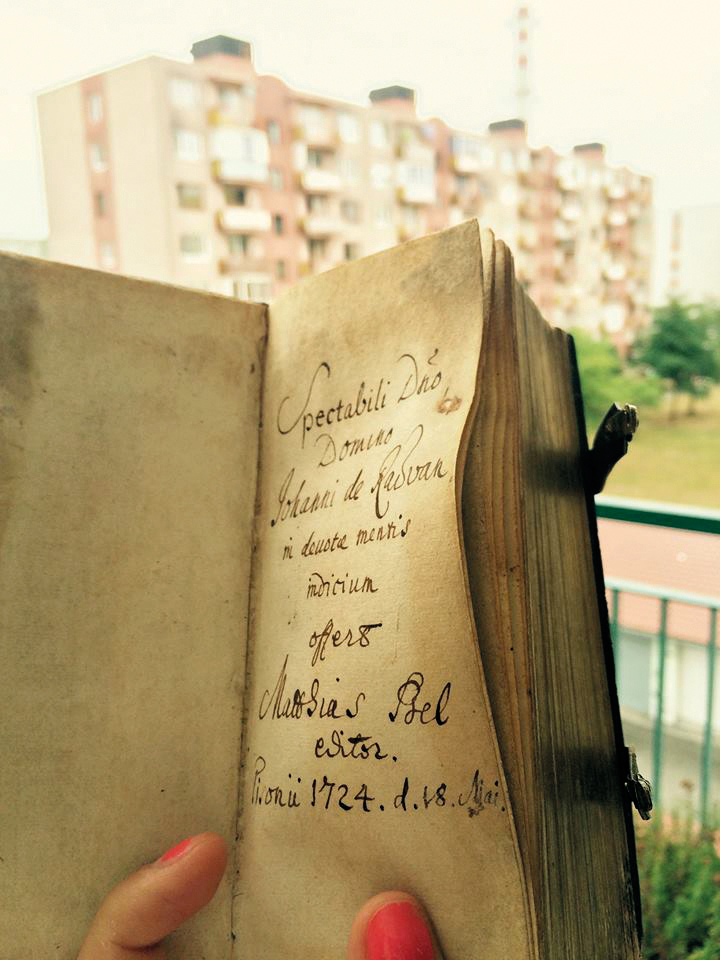 Spectabili Dnō,
Domino
Johanni de Radvan,
in devotæ mentis
indicium
offert
Matthias Bel
editor.
Pisonii 1724. d. 18. Mai.